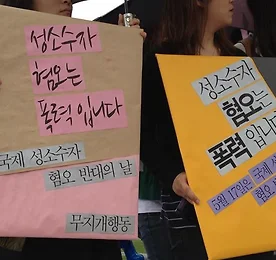 성소수자
혐오는
폭력입니다
국제 성소수자
혐오 반대의 날
무지개행동
성소수자
혐오는
폭력입니
5월 17일은 국제
혐오